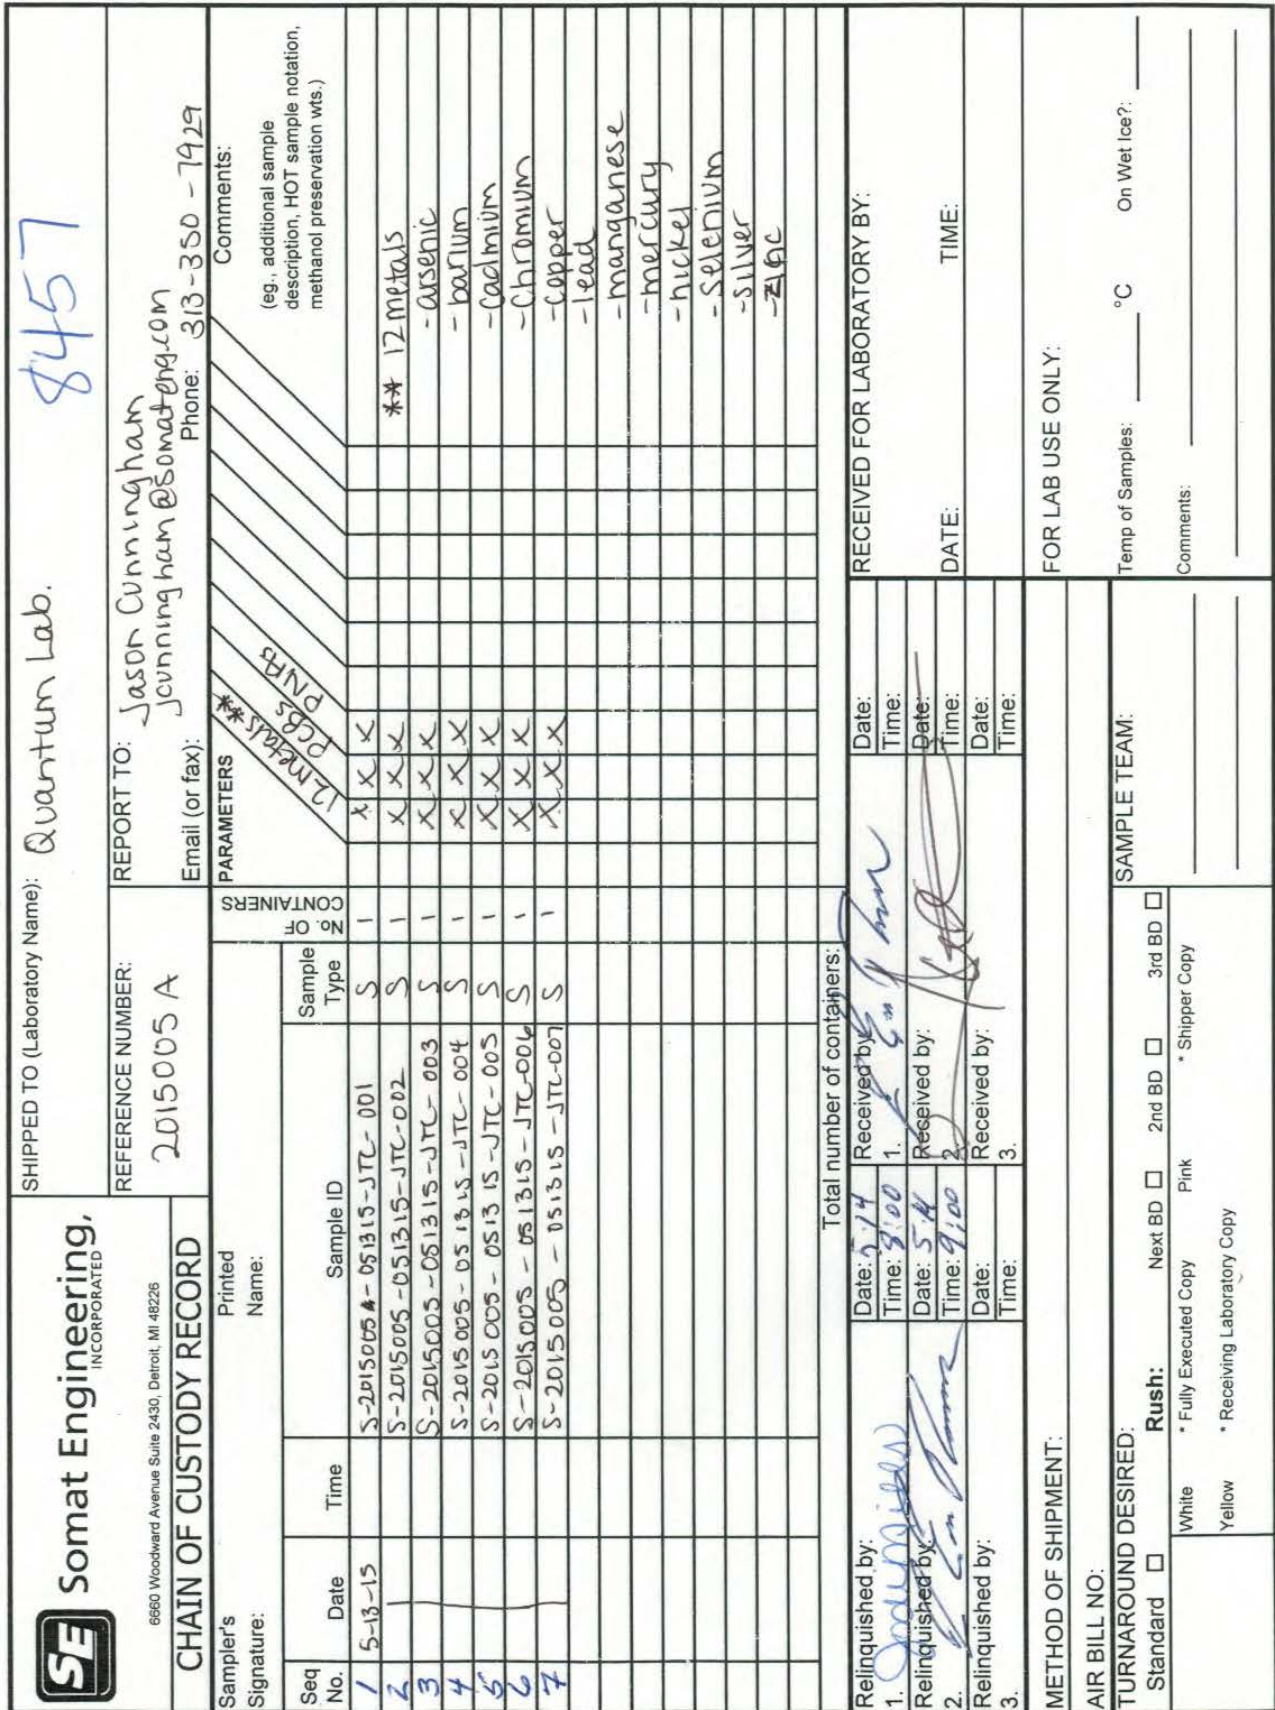 SE Somat Engineering,
INCORPORATED
6660 Woodward Avenue Suite 2430, Detroit, MI 48226
CHAIN OF CUSTODY RECORD
SHIPPED TO (Laboratory Name): Quantum Lab. 8457
REFERENCE NUMBER:
2015005A
REPORT TO: Jason Cunningham
jcunningham@somateng.com
Email (or fax): Phone: 313-350-7929
Sampler's Signature:
Printed Name:
PARAMETERS
12 metals **
PCBs
PNAs
Comments:
(eg., additional sample
description, HOT sample notation,
methanol preservation wts.)
Seq No. Date Time Sample ID Sample Type No. OF CONTAINERS
1 5-13-15 S-2015005A-051315-JTC-001 S 1 X X X
2 S-2015005-051315-JTC-002 S 1 X X X ** 12 metals
3 S-2015005-051315-JTC-003 S 1 X X X -arsenic
4 S-2015005-051315-JTC-004 S 1 X X X -barium
5 S-2015005-051315-JTC-005 S 1 X X X -Cadmium
6 S-2015005-051315-JTC-006 S 1 X X X -Chromium
7 S-2015005-051315-JTC-007 S 1 X X X -Copper
-lead
-manganese
-mercury
-nickel
-Selenium
-silver
-zinc
Total number of containers:
Relinquished by: 1. Date: 5.14 Time: 8:00 Received by: 1. Date: Time:
Relinquished by: 2. Date: 5.14 Time: 9:00 Received by: 2. Date: Time:
Relinquished by: 3. Date: Time: Received by: 3. Date: Time:
RECEIVED FOR LABORATORY BY:
DATE: TIME:
METHOD OF SHIPMENT:
AIR BILL NO:
FOR LAB USE ONLY:
TURNAROUND DESIRED:
Standard □ Rush: Next BD □ 2nd BD □ 3rd BD □
SAMPLE TEAM:
Temp of Samples: °C On Wet Ice?:
Comments:
White * Fully Executed Copy Pink * Shipper Copy
Yellow * Receiving Laboratory Copy